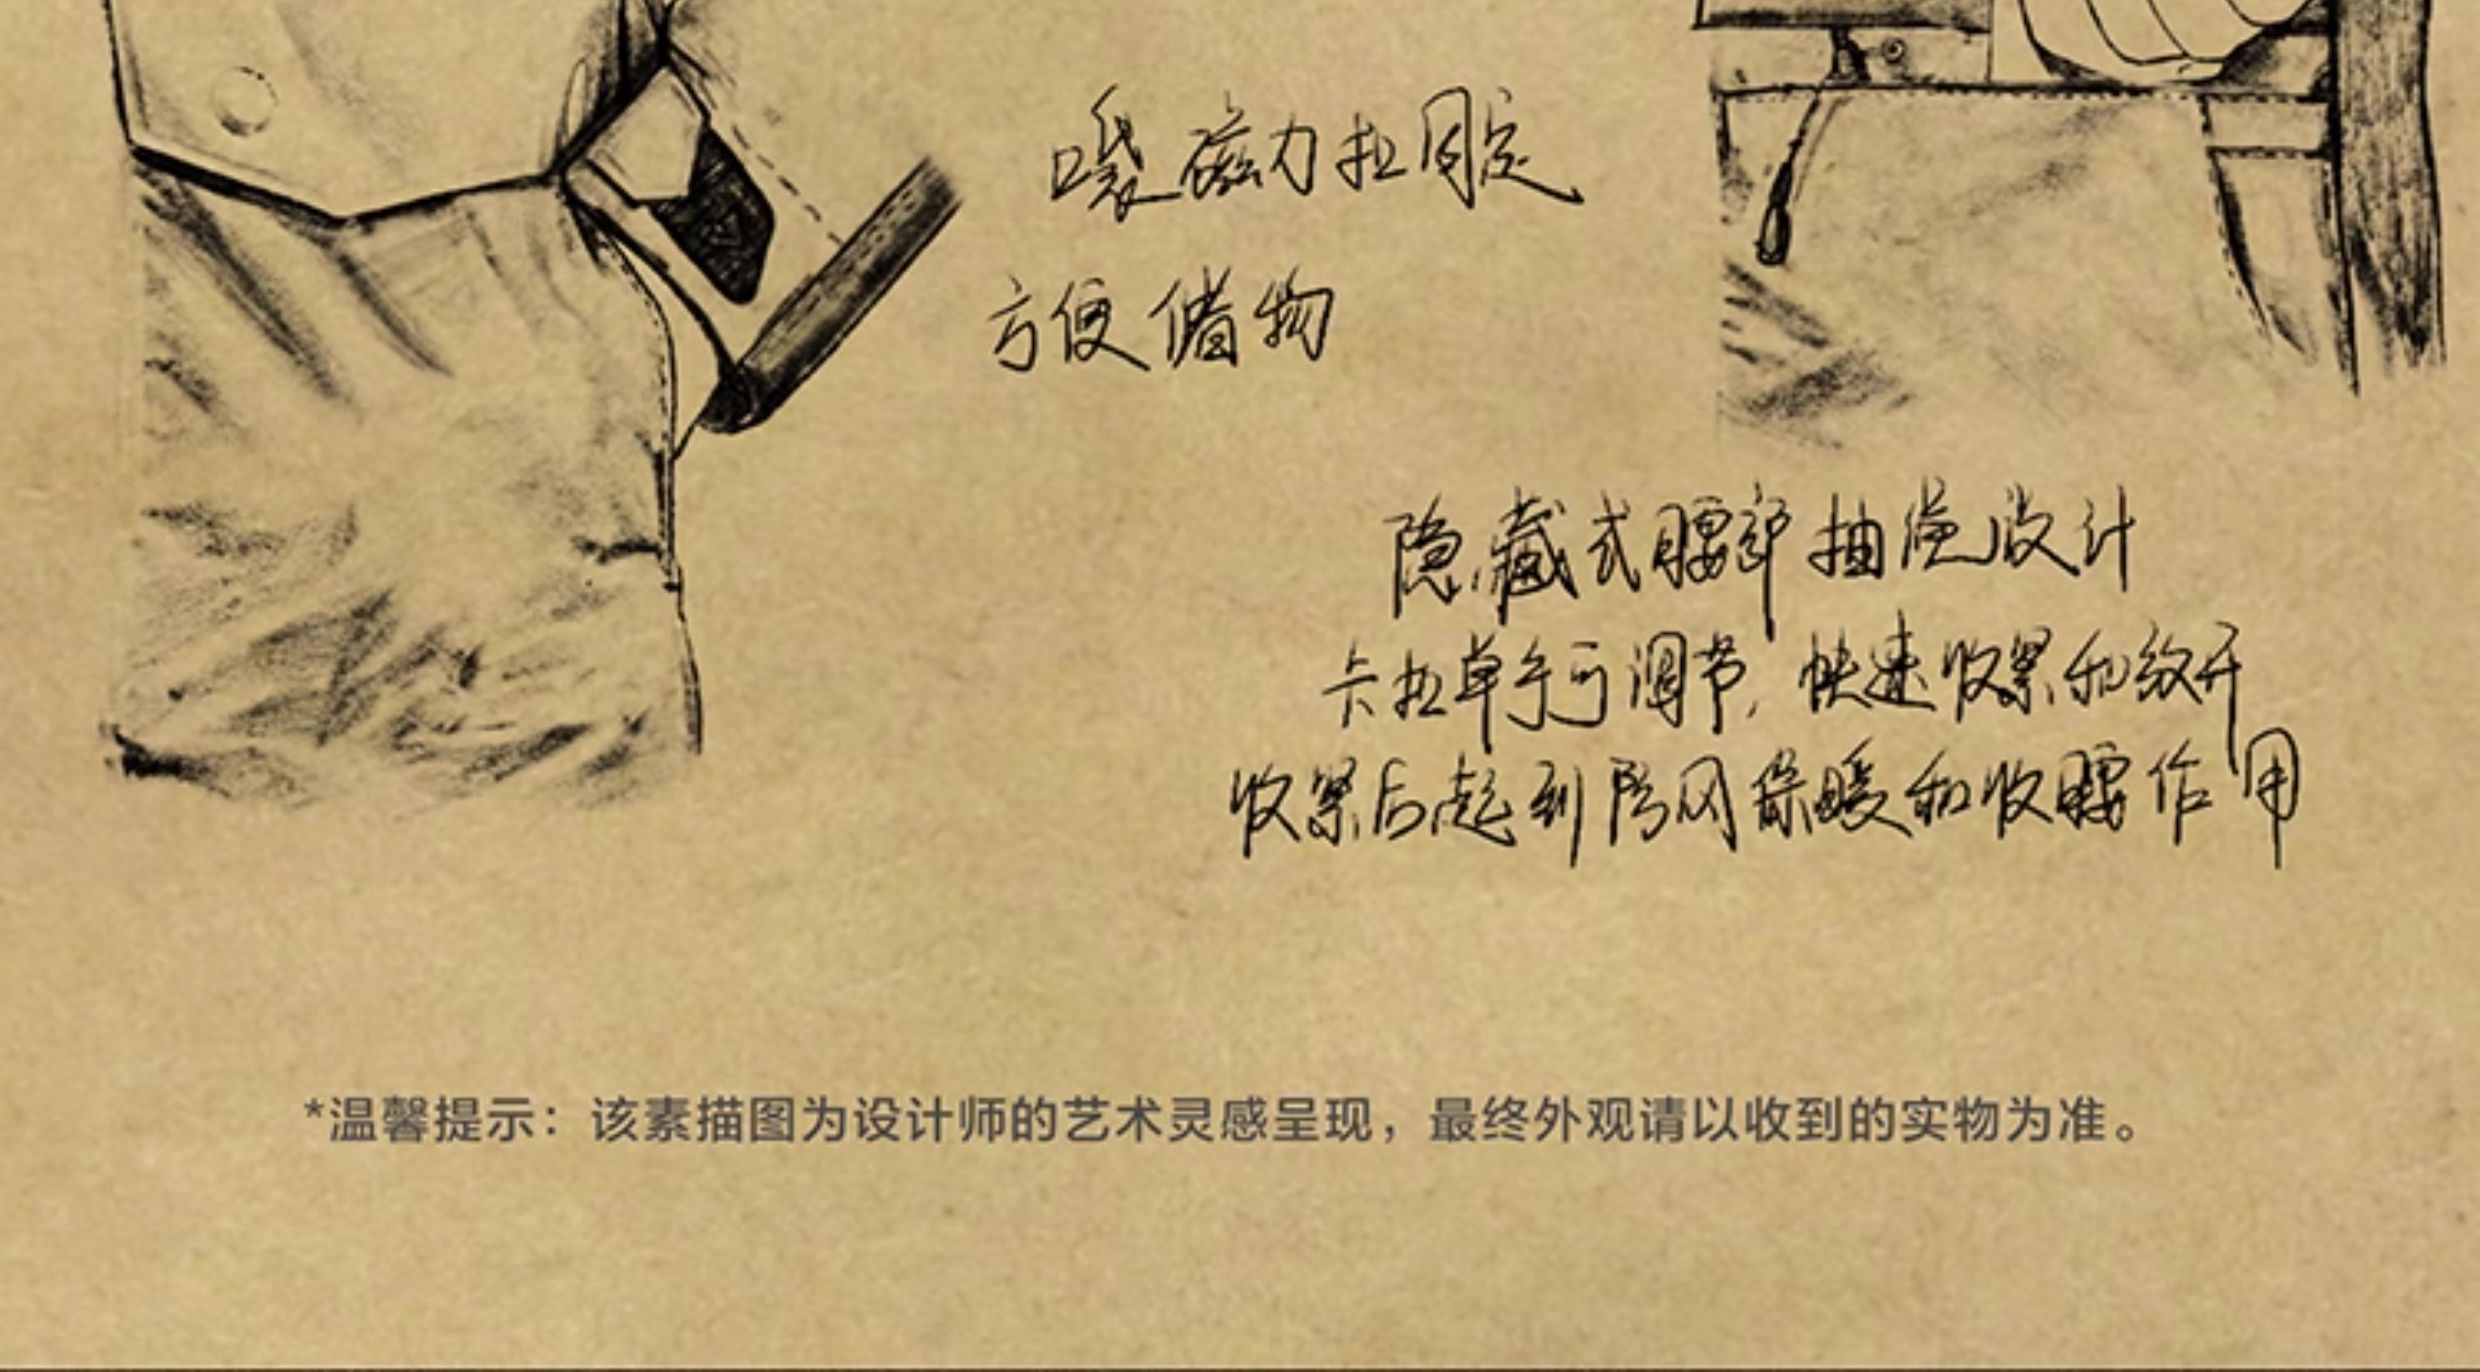 口袋磁力扣固定
方便储物
隐藏式腰部抽绳设计
卡扣单手可调节,快速收紧和放开
收紧后起到防风保暖和收腰作用
*温馨提示：该素描图为设计师的艺术灵感呈现，最终外观请以收到的实物为准。